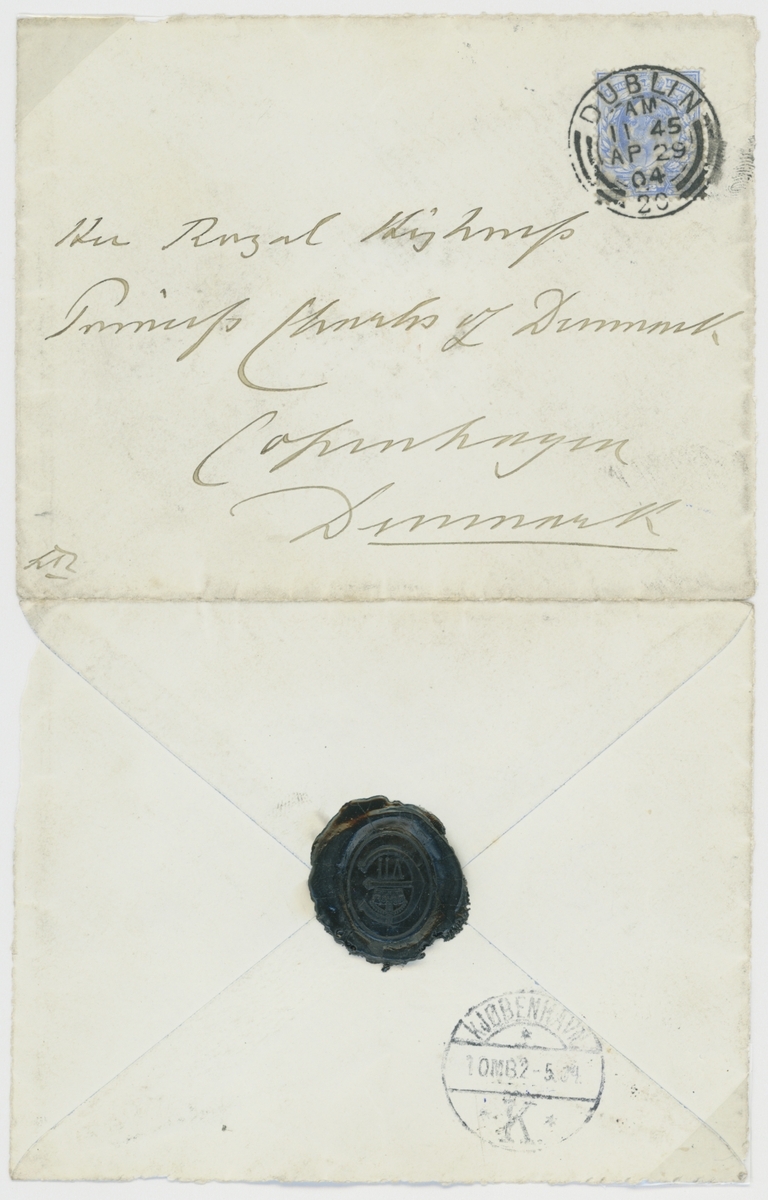 DUBLIN
AM
11 45
AP 29
04
20
Her Royal Highness
Princess Charles of Denmark
Copenhagen
Denmark
KJØBENHAVN
10MB2-5.04
K